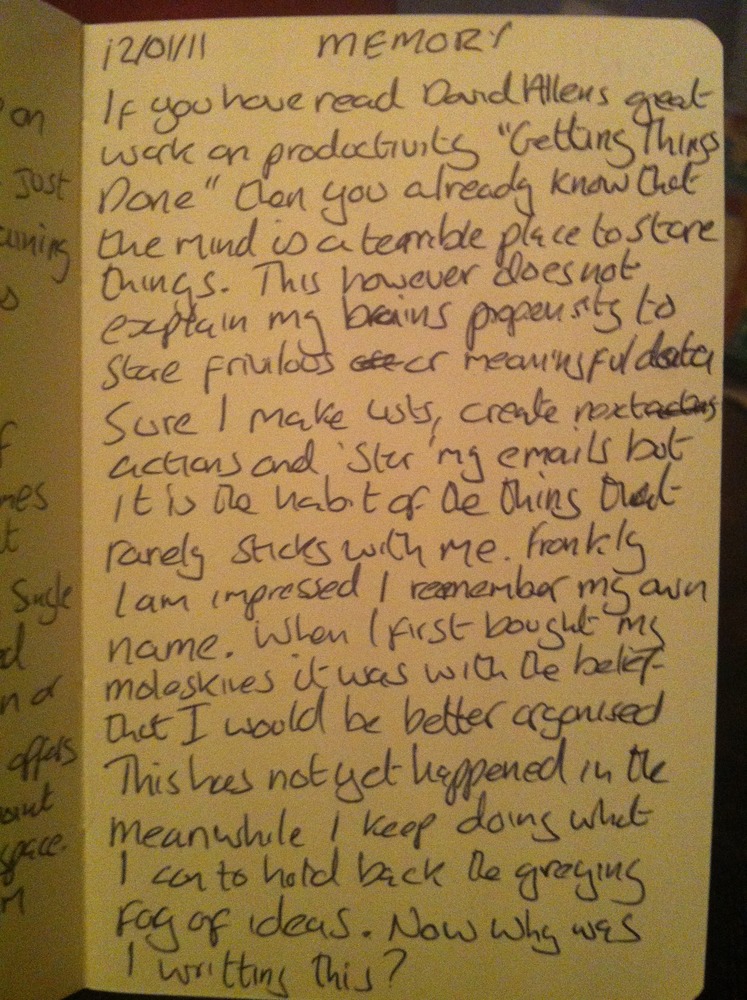 on
Just
s
f
mes
t
Single
d
n or
offers
point
space.
M
12/01/11 MEMORY
If you have read David Allens great
work on productivity "Getting Things
Done" then you already know that
the mind is a terrible place to store
things. This however does not
explain my brains propensity to
store frivilous or meaningful data
Sure I make lists, create next
actions and 'Star' my emails but
it is the habit of the thing that
rarely sticks with me. Frankly
I am impressed I remember my own
name. When I first bought my
moleskines it was with the belief
that I would be better organised
This has not yet happened in the
meanwhile I keep doing what
I can to hold back the greying
fog of ideas. Now why was
I writting this?